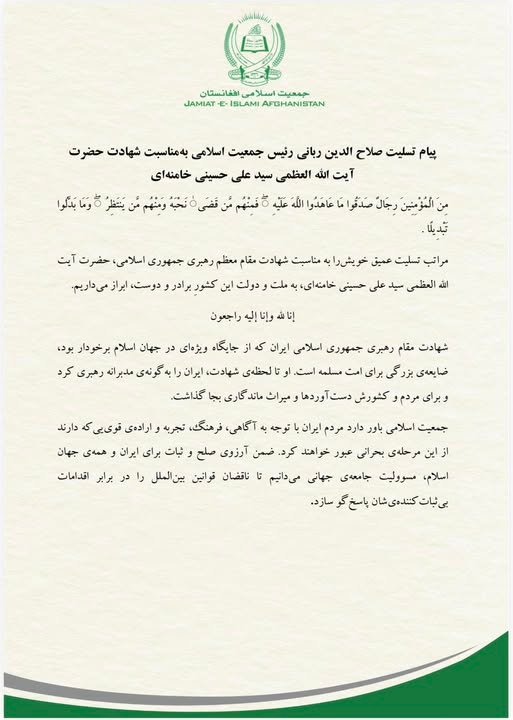 جمعیت اسلامی افغانستان
JAMIAT -E- ISLAMI AFGHANISTAN
پیام تسلیت صلاح الدین ربانی رئیس جمعیت اسلامی به‌مناسبت شهادت حضرت
آیت الله العظمی سید علی حسینی خامنه‌ای
مِنَ الْمُؤْمِنِينَ رِجَالٌ صَدَقُوا مَا عَاهَدُوا اللَّهَ عَلَيْهِ ۖ فَمِنْهُم مَّن قَضَىٰ نَحْبَهُ وَمِنْهُم مَّن يَنتَظِرُ ۖ وَمَا بَدَّلُوا
تَبْدِيلًا .
مراتب تسلیت عمیق خویش‌را به مناسبت شهادت مقام معظم رهبری جمهوری اسلامی، حضرت آیت
الله العظمی سید علی حسینی خامنه‌ای، به ملت و دولت این کشور برادر و دوست، ابراز می‌داریم.
إنا لله وإنا إليه راجعون
شهادت مقام رهبری جمهوری اسلامی ایران که از جایگاه ویژه‌ای در جهان اسلام برخودار بود،
ضایعه‌ی بزرگی برای امت مسلمه است. او تا لحظه‌ی شهادت، ایران را به‌گونه‌ی مدبرانه رهبری کرد
و برای مردم و کشورش دست‌آوردها و میراث ماندگاری بجا گذاشت.
جمعیت اسلامی باور دارد مردم ایران با توجه به آگاهی، فرهنگ، تجربه و اراده‌ی قوی‌یی‌که دارند
از این مرحله‌ی بحرانی عبور خواهند کرد. ضمن آرزوی صلح و ثبات برای ایران و همه‌ی جهان
اسلام، مسوولیت جامعه‌ی جهانی می‌دانیم تا ناقضان قوانین بین‌الملل را در برابر اقدامات
بی‌ثبات‌کننده‌ی‌شان پاسخ‌گو سازد.